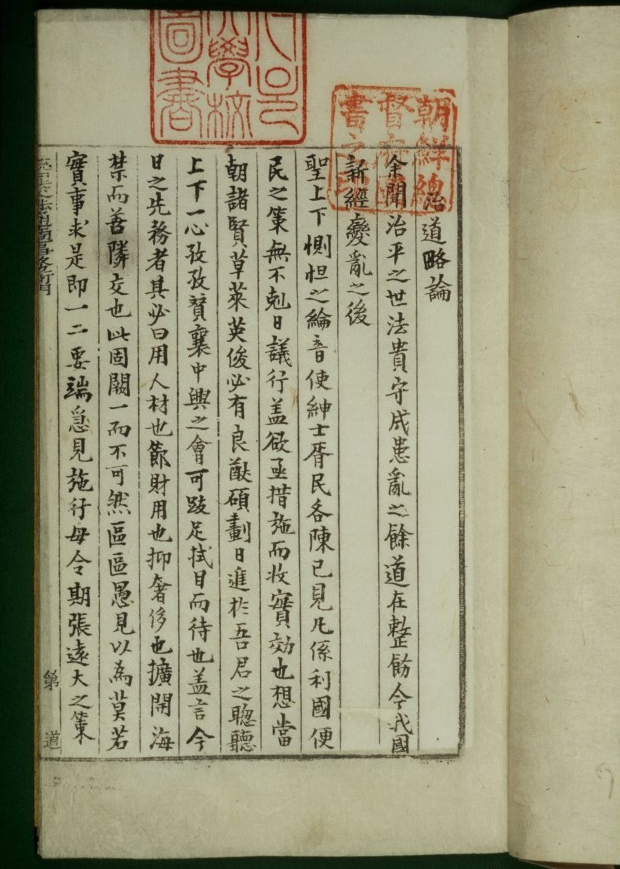 治道略論
余聞治平之世法貴守成患亂之餘道在整飭今我國
新經變亂之後
聖上下惻怛之綸音使紳士胥民各陳己見凡係利國便
民之策無不剋日議行盖欲亟措施而收實効也想當
朝諸賢草萊英俊必有良猷碩劃日進於吾君之聰聽
上下一心孜孜贊襄中興之會可跂足拭目而待也盖言今
日之先務者其必曰用人材也節財用也抑奢侈也擴開海
禁而善隣交也此固闕一而不可然區區愚見以為莫若
實事求是即一二要端急見施行毋令期張遠大之策
第 道
朝鮮總
督府
書之
學校
圖書